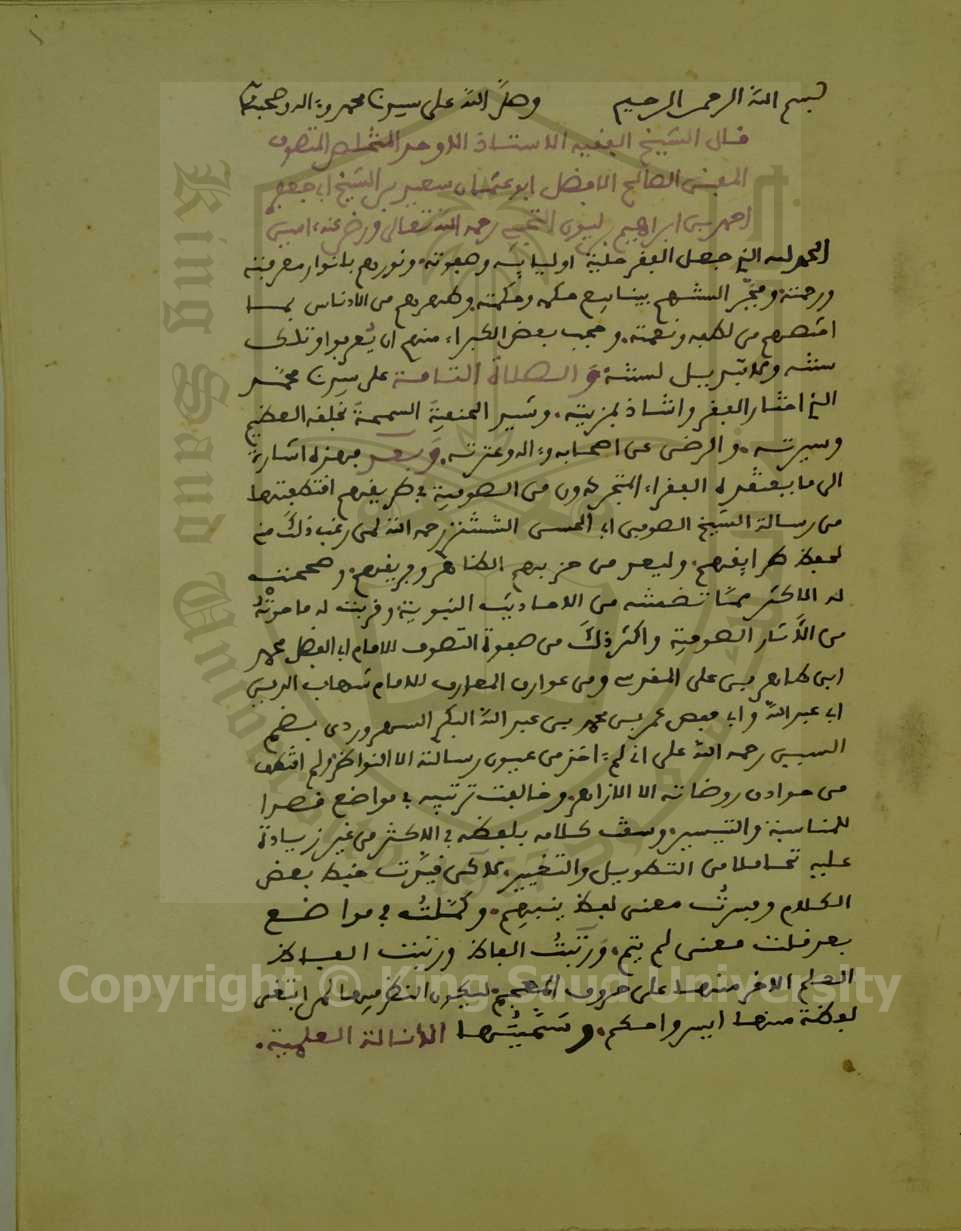 بسم الله الرحمن الرحيم وصلى الله على سيدنا محمد وءاله وصحبه
قال الشيخ الفقيه الاستاذ الاوحد المتصوف
المفتي الصالح الافضل ابو عثمان سعيد بن الشيخ ابي جعفر
احمد بن ابراهيم بن ليون التجيبي رحمه الله تعالى ورضي عنه ءامين
الحمد لله الذي جعل الفقر حلية اوليائه وصفوته ونورهم بانوار معرفته
ورحمته وفجر السنتهم بينابيع حكمه وحكمته وطهرهم من الادناس بما
اختصهم من لطفه ونعمته وحجب بعض الكبراء منهم ان يعرفوا وتلك
سنته ولا تبديل لسنته والصلاة التامة على سيدنا محمد
الذي اختار الفقر واشاد بمزيته وشيد الحنيفية السمحة بخلقه العظيم
وسيرته والرضى عن اصحابه وءاله وعترته وبعد فهذه اشارة
الى ما يعتقده الفقراء المتجردون من الصوفية في طريقهم اقتطعتها
من رسالة الشيخ الصوفي ابي الحسن الششتري رحمه الله لمن رغب ذلك مني
لحفظ طرايقهم وليعد من حزبهم الظاهر وفريقهم وصححت
له الاكثر مما تضمنته من الاحاديث النبوية وقربت له ما حوته
من الآثار الصوفية واكثر ذلك من صفوة التصوف للامام ابي الفضل محمد
ابن طاهر بن علي المقدسي ومن عوارف المعارف للامام شهاب الدين
ابي عبد الله وابي حفص عمر بن محمد بن عبد الله البكري السهروردي بضم
السين رحمه الله على اني لم ءاخذ من عيون رسالته الا النواظر ولم اقتطف
من حدائق روضاته الا الازاهر وخالفت ترتيبه في مواضع قصدا
للمناسبة والتيسير وسقت كلامه بلفظه في الاكثر من غير زيادة
عليه تحاملا من التطويل والتغيير لاكن قيدت ضبط بعض
الكلام وفسرت معنى لفظ ينبهم وكملت في مواضع
بعد قلت معنى لم يتم ورتبت الفاظ ورتبت الفاظ
العلم الاخر منها على حروف المعجم ليكون النظر فيها لمن ابتغى
لفظة منها ايسر واحكم وسميتها الانالة العلمية
King Saud University
Copyright © King Saud University